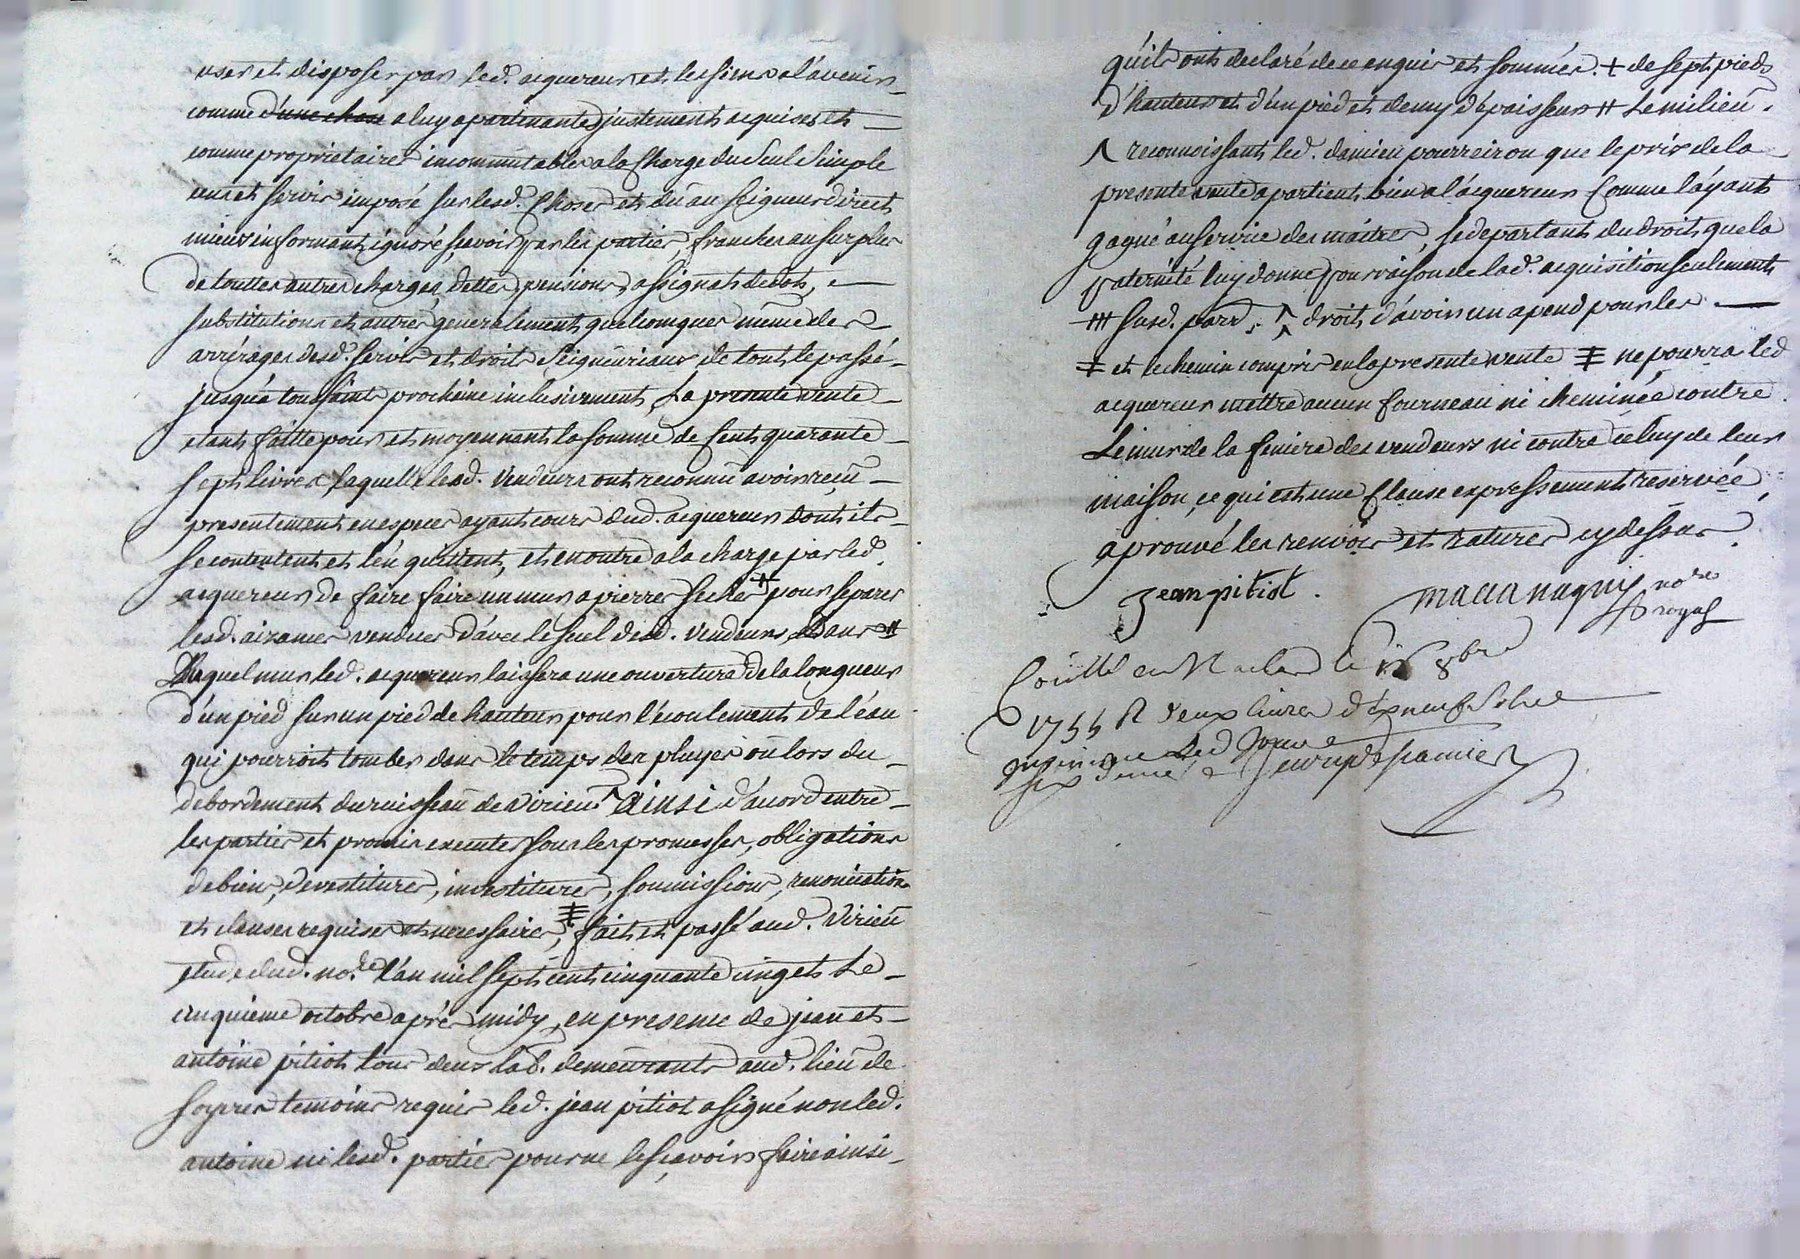 user et disposer par led. aquereur et les siens a l'avenir
comme d'une chose a luy apartenante justement acquises et
comme proprietaire incommutable a la charge du seul simple
cens et servis imposé sur lesd. choses et dû au seigneur direct
mieux informant, ignoré sçavoir par les parties, franches au surplus
de touttes autres charges, dettes, pensions, assignats de dots,
substitutions et autres generalement quelconques même des
arrérages desd. servis et droits seigneuriaux de tout le passé
jusqu'a toussaints prochaine inclusivement, La presente vente
etant faitte pour et moyennant la somme de cent quarante
sept livres laquelle lesd. vendeurs ont reconnû avoir reçû
presentement en especes ayant cours dud. aquereur dont ils
se contentent et l'en quittent, et en outre a la charge par led.
aquereur de faire faire un mur a pierres seches + pour separer
lesd. aizances vendues d'avec le seuel desd. vendeurs, dans #
Lequel mur led. aquereur laissera une ouverture de la longueur
d'un pied sur un pied de hauteur pour l'écoulement de l'éau
qui pourroit tomber dans le temps des pluyes où lors du
debordement du ruisseau de virieu. ^ ainsi d'accord entre
les parties et promis executer sous les promesses, obligations
de biens, devestitures, investitures, soumissions, renonciations
et clauses requises et necessaires, ‡ fait et passé aud. virieu
etude dud. no.re l'an mil sept cent cinquante cinq et le
cinquieme octobre aprés midy, en presence de jean et
antoine pitiot tous deux lab. demeurants aud. lieu de
temoins requis led. jean pitiot a signé non led.
antoine ni lesd. parties pour ne le sçavoir faire ainsi
qu'ils ont declaré de ce enquis et sommés. + de sept pieds
d'hauteur et d'un pied et demy d'épaisseur # Le milieu.
^ reconnoissant led. damien pourreiron que le prix de la
presente vente apartient bien a l'aquereur comme l'ayant
gagné au service des maitres, se departant du droit que la
fraternité luy donne pour raison de lad. acquisition seulement
susd. pard. ^ droit d'avoir un apend pour les
‡ et le chemin compris en la presente vente ‡ ne pourra led.
aquereur mettre aucun fourneau ni cheminée contre
Le mur de la feniere des vendeurs ni contre celuy de leur
maison, ce qui est une clause expressement reservée,
aprouvé les renvois et ratures cy dessus.
jean pitiot. maccanaquis no.re
royal
8bre
1755 R deux livres dix neuf sols
six deniers